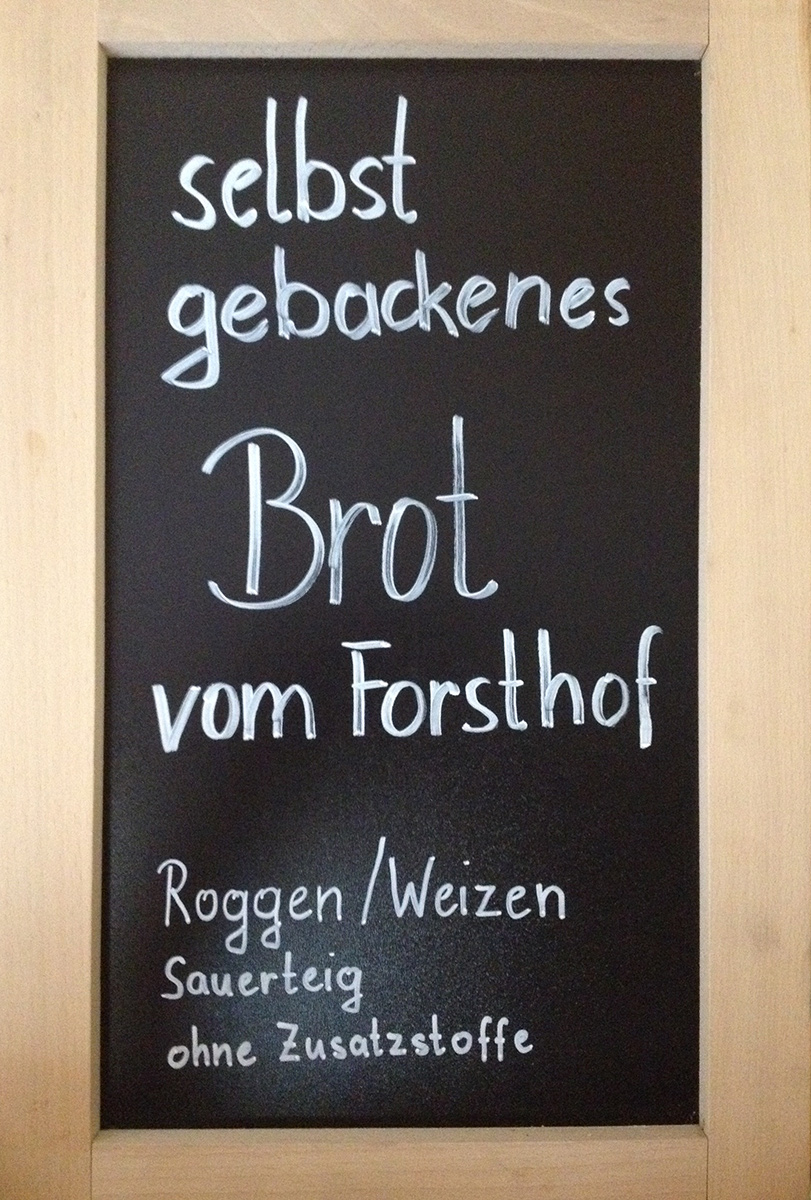 selbst
gebackenes
Brot
vom Forsthof
Roggen/Weizen
Sauerteig
ohne Zusatzstoffe